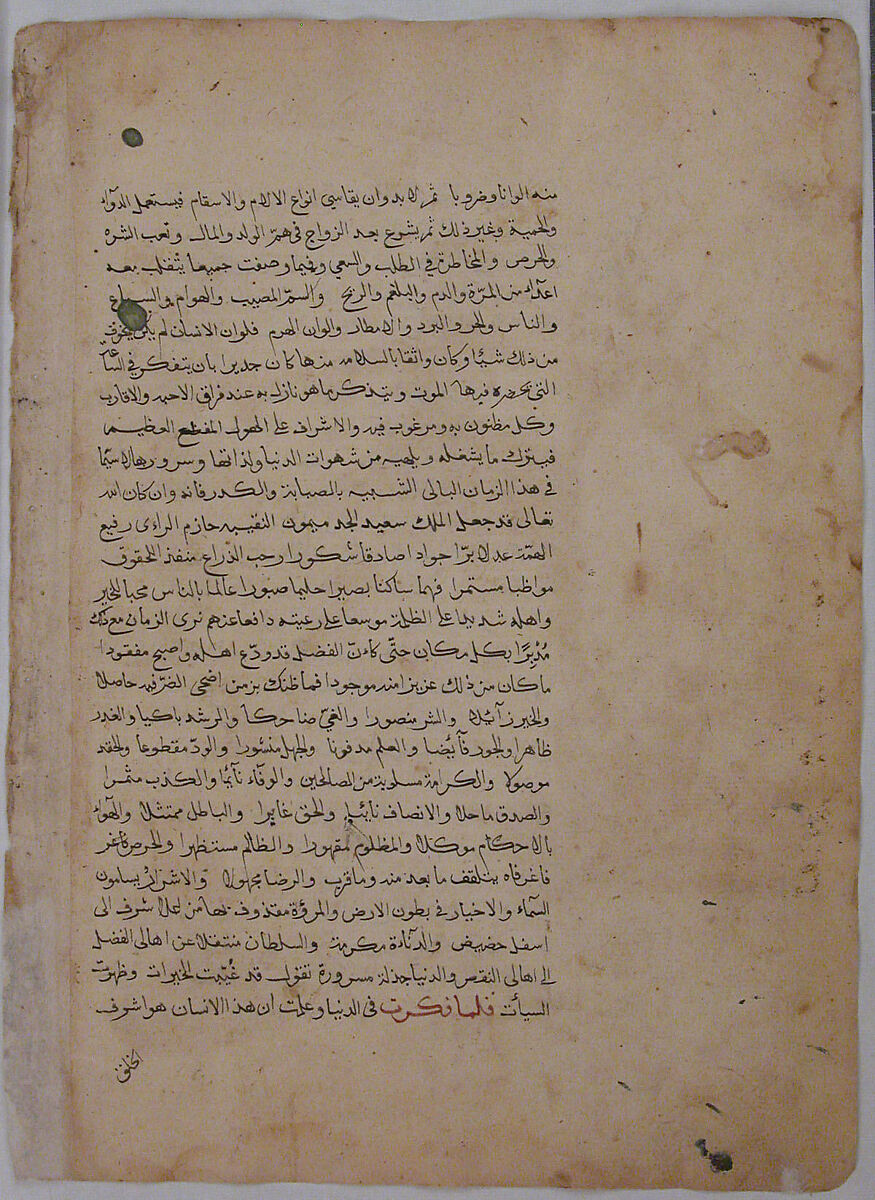 منه الوانا وضروبا ثم لا بد وان يقاسي انواع الالام والاسقام فيستعمل الدوآء
والحمية وغير ذلك ثم يشوع بعد الزواج في هم الولد والمال وتعب الشره
والحرص والمخاطرة في الطلب والسعي وفيما وصفت جميعا يتقلب معه
اعدآء من المرّة والدم والبلغم والريح والسمّ المصيب والهوام والسباع
والناس والحر والبرد والامطار والوان الهرم فلوان الانسان لم يكن يخوف
من ذلك شيئا وكان واثقا بالسلامه منها كان جديرا بان يتفكر في الساعة
التي تحضره فيها الموت ويتذكر ما هو نازل به عند فراق الاحبه والاقارب
وكل مظنون به ومرغوب فيه والاشراف على الهول المفظع العظيم
فيترك ما يشغله ويلهيه من شهوات الدنيا ولذاتها وسرورها لا سيّما
في هذا الزمان البالى الشبيه بالصبابة والكدر فانه وان كان الله
تعالى قد جعل الملك سعيد الجد ميمون النقيبه حازم الراءى رفيع
الهمّة عدلا برّا جوادا صادقا شكورا رحب الذراع منفذ الحقوق
مواظبا مستمرا فهما ساكنا بصيرا حليما صبورا عالما بالناس محبا للخير
واهله شديدا على الظلمة موسعا على رعيته دافعا عنهم نرى الزمان مع ذلك
مُدْبِرًا بكل مكان حتّى كاءنّ الفضل قد ودّع اهله واصبح مفقودا
ما كان من ذلك عزيزا منه موجودا فما ظنك بزمن اضحى الضرّ فيه حاصلا
والخير زآئلا والشر منصورا والغيّ ضاحكا والرشد باكيا والغدر
ظاهرا والجور فآئضا والعلم مدفونا والجهل منشورا والودّ مقطوعا والحقد
موصولا والكرامة مسلوبة من الصالحين والوفآء نآئما والكذب مثمرا
والصدق ماحلا والانصاف نآئيا والحق غايرا والباطل ممتثلا والهوآء
بالاحكام موكلا والمظلوم مقهورا والظالم مستظهرا والحرص فاغر
فاغرفاه يتلقف ما بعد منه وما قرب والرضا مجهولا والاشرارُ يسامون
السمآء والاخيار في بطون الارض والمروّة مقذوف بها من اعلا شرف الى
اسفل حضيض والدنآءة مكرمة والسلطان منتقلا عن اهالى الفضل
الى اهالى النقص والدنيا جذلة مسرورة تقول قد غُيّبت الخيرات وظهرت
السيأت فلما فكرت في الدنيا وعلمت ان هذا الانسان هو اشرف
الخلق